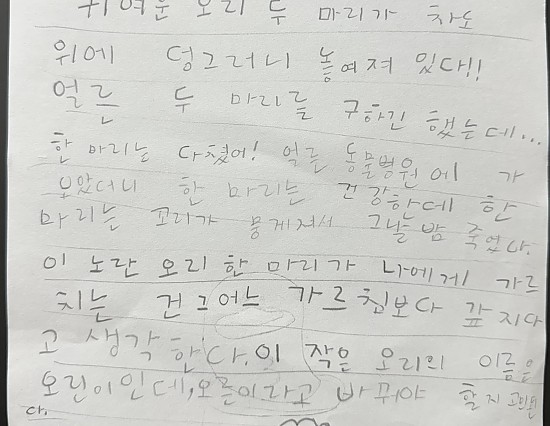 귀여운 오리 두 마리가 차도
위에 덩그러니 놓여져 있다!!
얼른 두 마리를 구하긴 했는데...
한 마리는 다쳤어! 얼른 동물병원에 가
보았더니 한 마리는 건강한데 한
마리는 꼬리가 뭉게져서 그날 밤 죽었다.
이 노란 오리 한 마리가 나에게 가르
치는 건 그 어느 가르침보다 갚지다
고 생각한다. 이 작은 오리의 이름은
오린이인데, 오른이라고 바꿔야 할지 고민된
다.